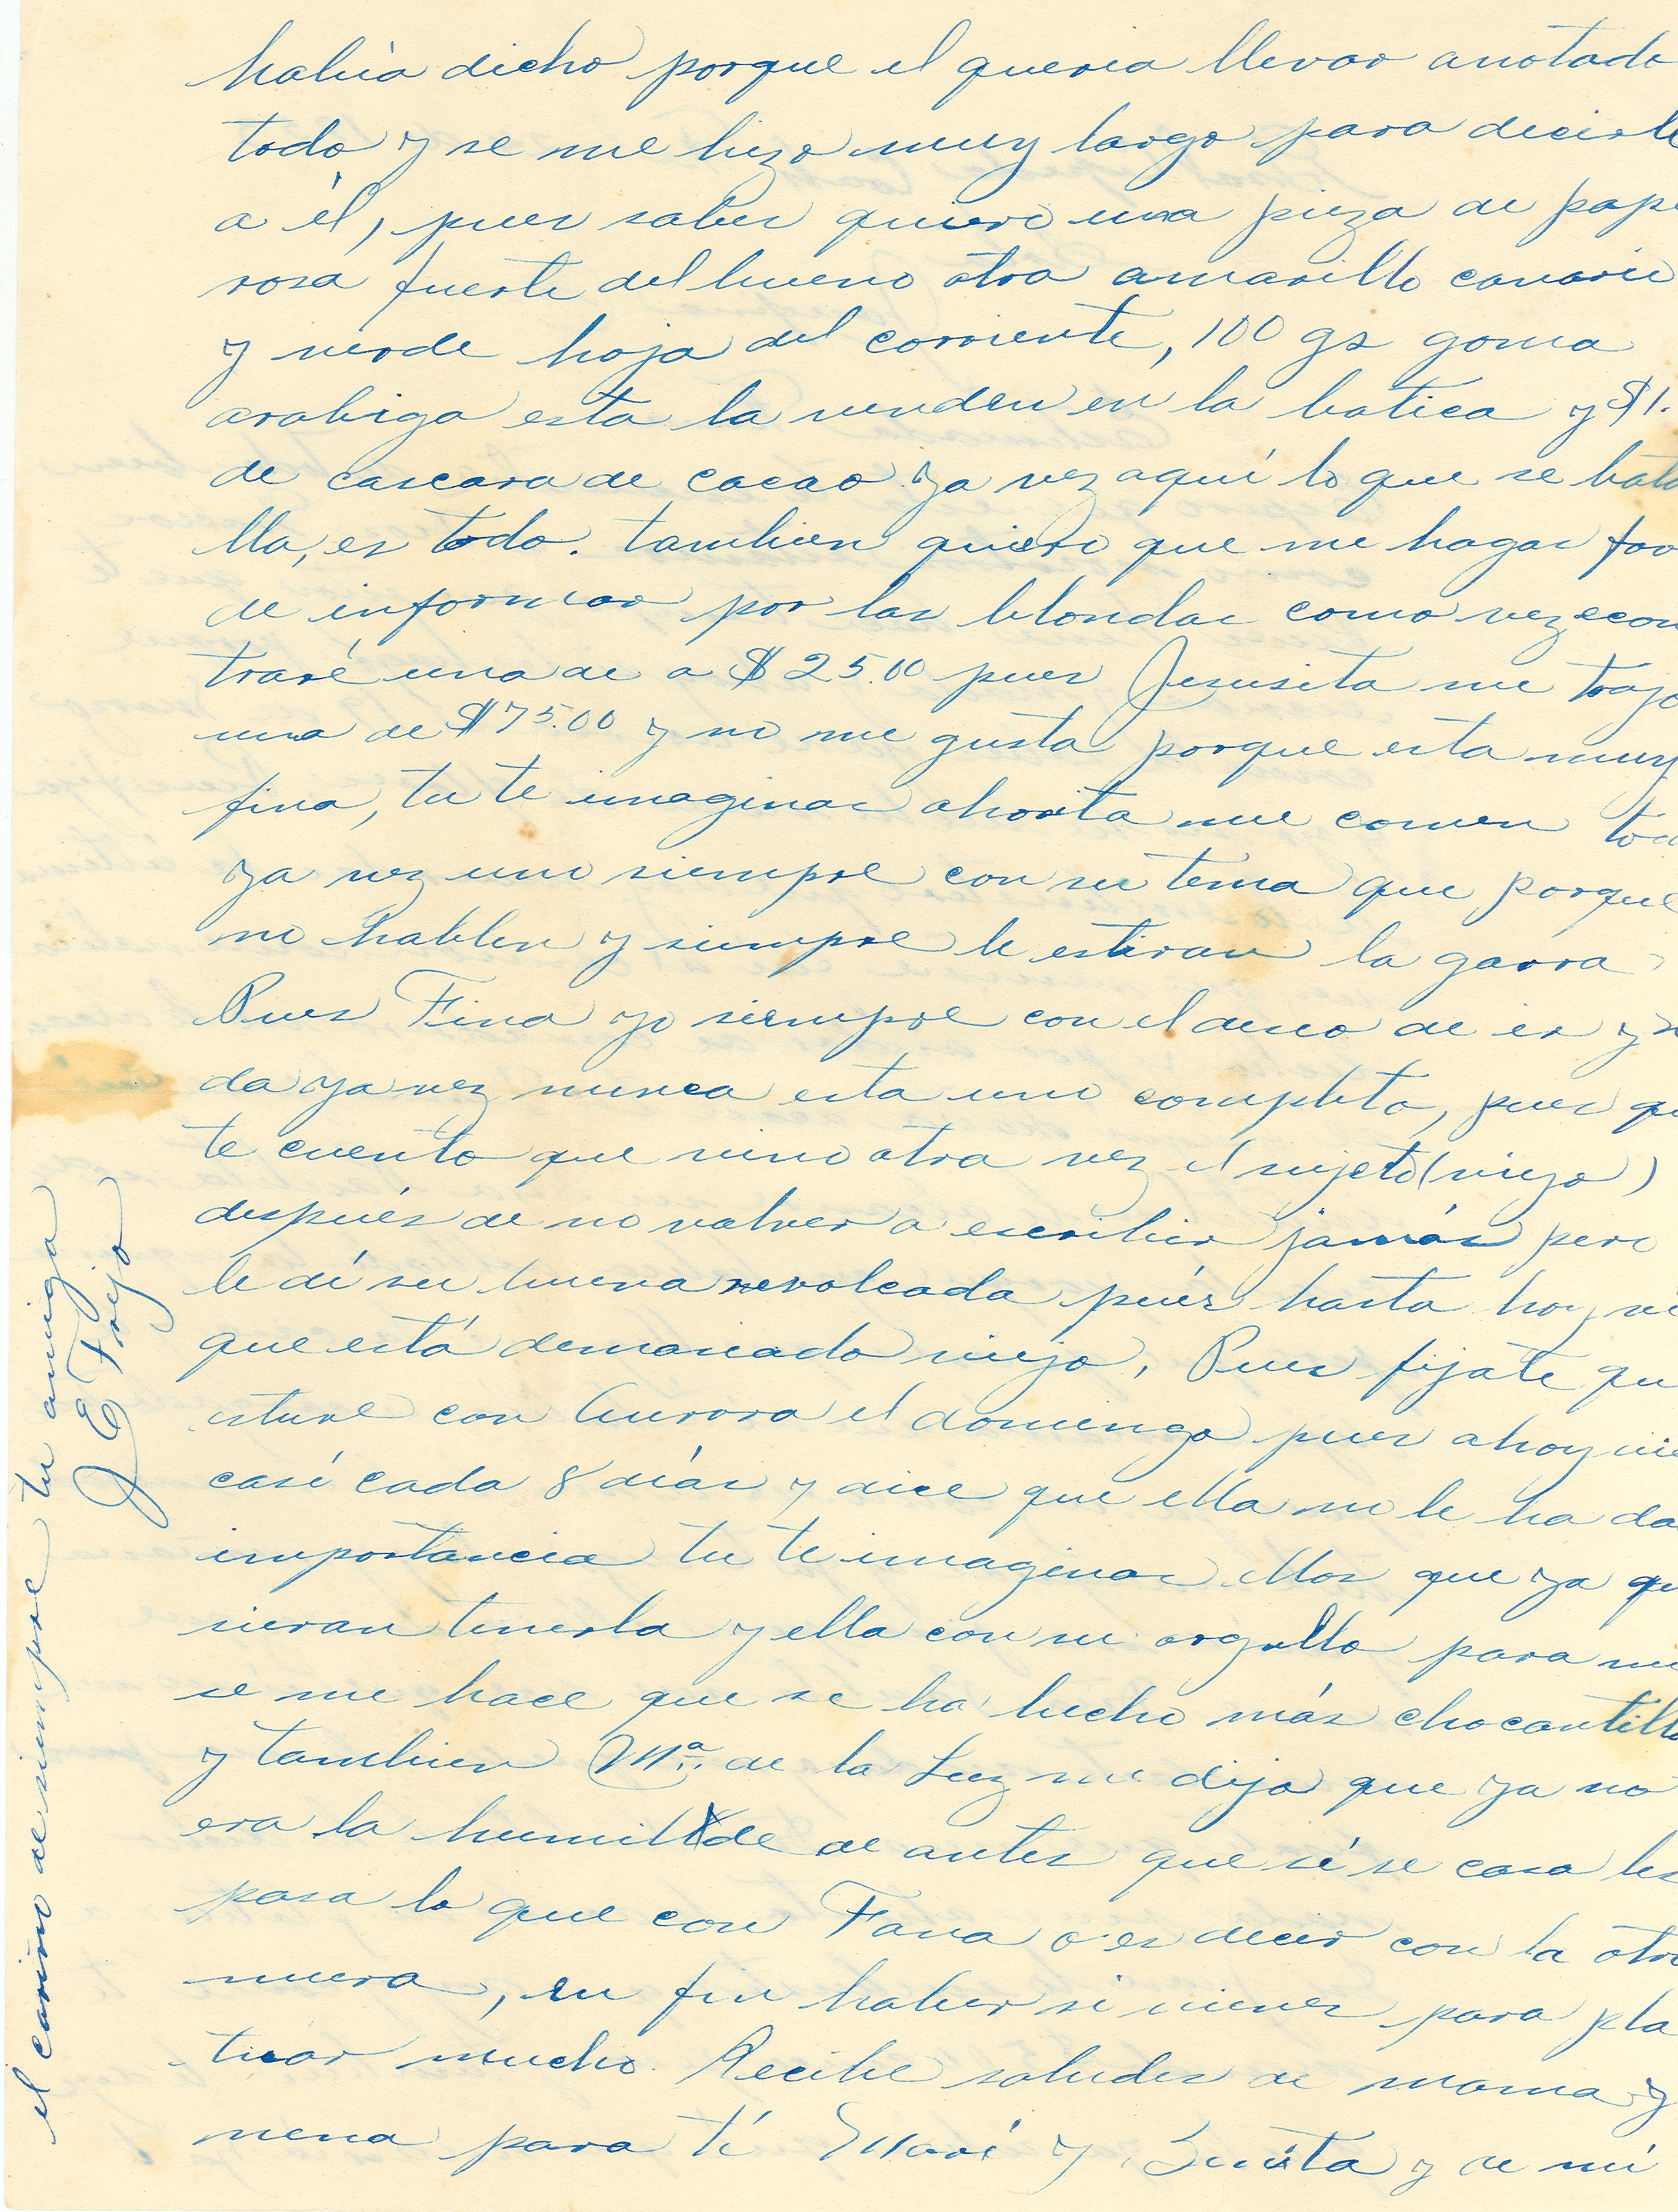 había dicho porque el queria llevar anotado
todo y se me hizo muy largo para decirle
a él, pues sabes quiero una pieza de pape
rosa fuerte del bueno otra amarillo canario
y verde hoja del corriente, 100 gs goma
arabiga esta la venden en la botica y $1.
de cascara de cacao ya vez aquí lo que se bata
lla, es todo. tambien quiero que me hagas fav
de informar por las blondas como vez econ
traré una de a $25.00 pues Jesusita me trajo
una de $75.00 y no me gusta porque esta muy
fina, tu te imaginas ahorita me comen tod
ya vez uno siempre con su tema que porque
no hablen y siempre le estiran la garra
Pues Fina yo siempre con el deseo de ir y n
da ya vez nunca esta uno completo, pues qu
te cuento que vino otra vez el sujeto (viejo)
después de no volver a escribir jamás pero
le dí su buena revolcada púes hasta hoy ve
que está demasiado viejo, Pues fijate qu
estuve con Aurora el domingo pues ahoy vie
casí cada 8 días y dice que ella no le ha da
importancia tu te imaginas ellos que ya qu
sieran tenerla y ella con su orgullo para mi
se me hace que se ha hecho más chocantilla
y tambien Ma. de la Luz me dijo que ya no
era la humilde de antes que sí se casa les
pasa lo que con Fana o es decir con la otra
nuera, en fin haber si vienes para pla
ticar mucho. Recibe saludes de mama y
nena para tí Marí y y de mi
el cariño de siempre tu amiga
J E Frejo